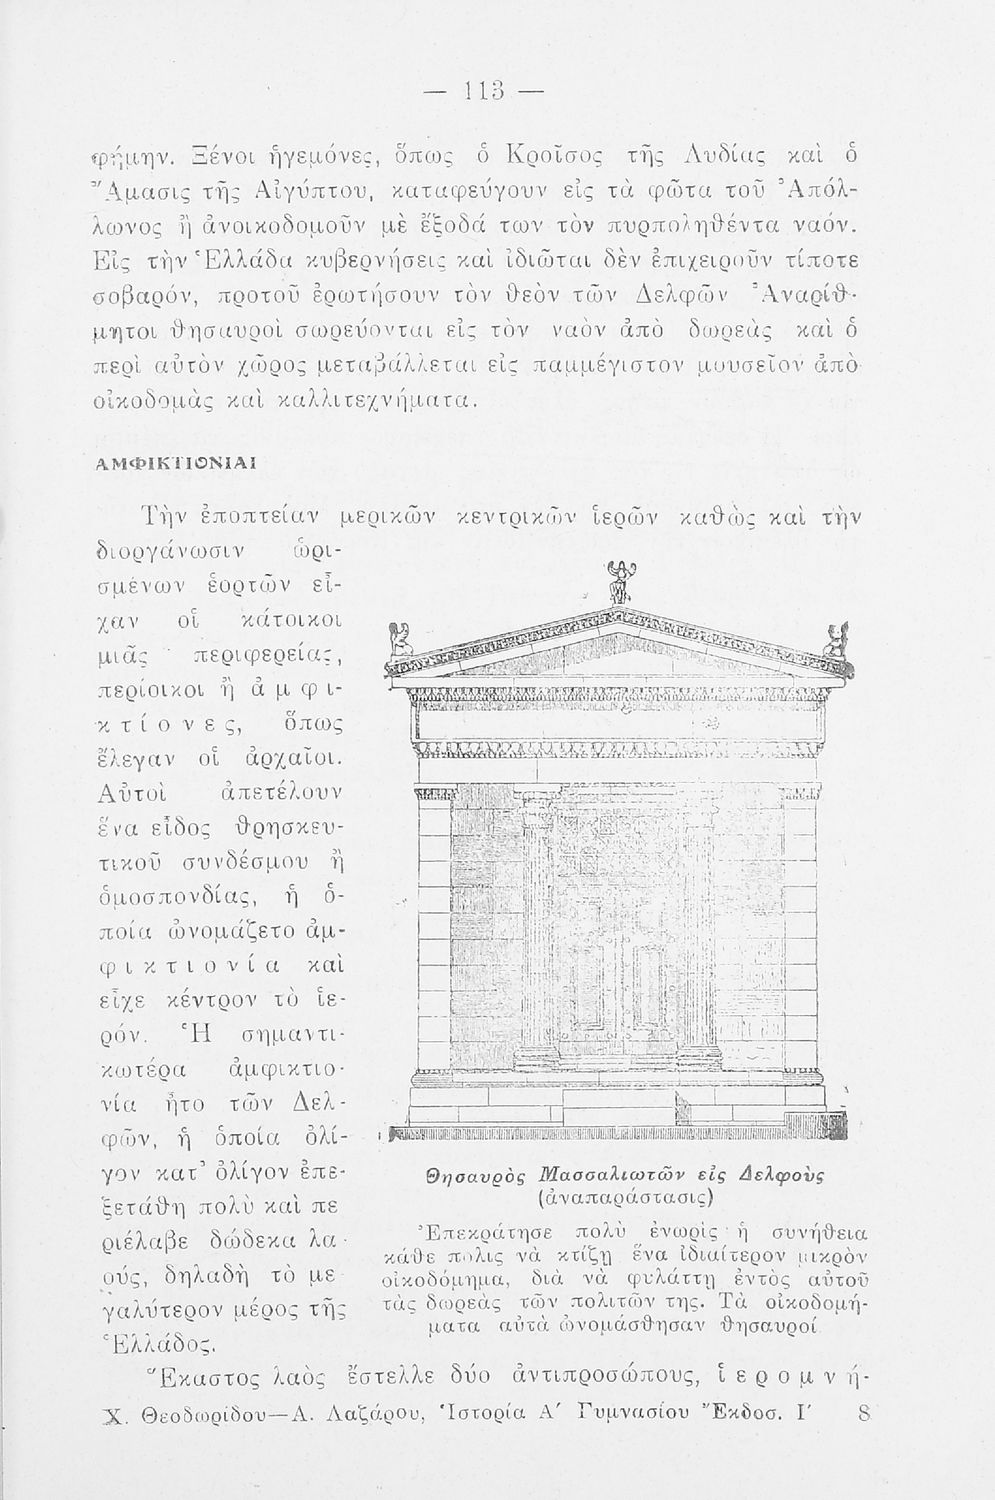 — 113 —
φήμην. Ξένοι ἡγεμόνες, ὅπως ὁ Κροῖσος τῆς Λυδίας καὶ ὁ
Ἄμασις τῆς Αἰγύπτου, καταφεύγουν εἰς τὰ φῶτα τοῦ Ἀπόλ-
λωνος ἢ ἀνοικοδομοῦν μὲ ἔξοδά των τὸν πυρποληθέντα ναόν.
Εἰς τὴν Ἑλλάδα κυβερνήσεις καὶ ἰδιῶται δὲν ἐπιχειροῦν τίποτε
σοβαρόν, προτοῦ ἐρωτήσουν τὸν θεὸν τῶν Δελφῶν Ἀναρίθ-
μητοι θησαυροὶ σωρεύονται εἰς τὸν ναὸν ἀπὸ δωρεὰς καὶ ὁ
περὶ αὐτὸν χῶρος μεταβάλλεται εἰς παμμέγιστον μουσεῖον ἀπὸ
οἰκοδομὰς καὶ καλλιτεχνήματα.
ΑΜΦΙΚΤΙΟΝΙΑΙ
Τὴν ἐποπτείαν μερικῶν κεντρικῶν ἱερῶν καθὼς καὶ τὴν
διοργάνωσιν ὡρι-
σμένων ἑορτῶν εἶ-
χαν οἱ κάτοικοι
μιᾶς περιφερείας,
περίοικοι ἢ ἀ μ φ ι-
κ τ ί ο ν ε ς, ὅπως
ἔλεγαν οἱ ἀρχαῖοι.
Αὐτοὶ ἀπετέλουν
ἕνα εἶδος θρησκευ-
τικοῦ συνδέσμου ἢ
ὁμοσπονδίας, ἡ ὁ-
ποία ὠνομάζετο ἀμ-
φ ι κ τ ι ο ν ί α καὶ
εἶχε κέντρον τὸ ἱε-
ρόν. Ἡ σημαντι-
κωτέρα ἀμφικτιο-
νία ἦτο τῶν Δελ-
φῶν, ἡ ὁποία ὀλί-
γον κατ’ ὀλίγον ἐπε-
ξετάθη πολὺ καὶ πε
ριέλαβε δώδεκα λα-
ούς, δηλαδὴ τὸ με
γαλύτερον μέρος τῆς
Ἑλλάδος.
Θησαυρὸς Μασσαλιωτῶν εἰς Δελφοὺς
(ἀναπαράστασις)
Ἐπεκράτησε πολὺ ἐνωρὶς ἡ συνήθεια
κάθε πόλις νὰ κτίζῃ ἕνα ἰδιαίτερον μικρὸν
οἰκοδόμημα, διὰ νὰ φυλάττῃ ἐντὸς αὐτοῦ
τὰς δωρεὰς τῶν πολιτῶν της. Τὰ οἰκοδομή-
ματα αὐτὰ ὠνομάσθησαν θησαυροί
Ἕκαστος λαὸς ἔστελλε δύο ἀντιπροσώπους, ἱ ε ρ ο μ ν ή-
Χ. Θεοδωρίδου—Α. Λαζάρου, Ἱστορία Α΄ Γυμνασίου Ἔκδοσ. Ι΄ 8